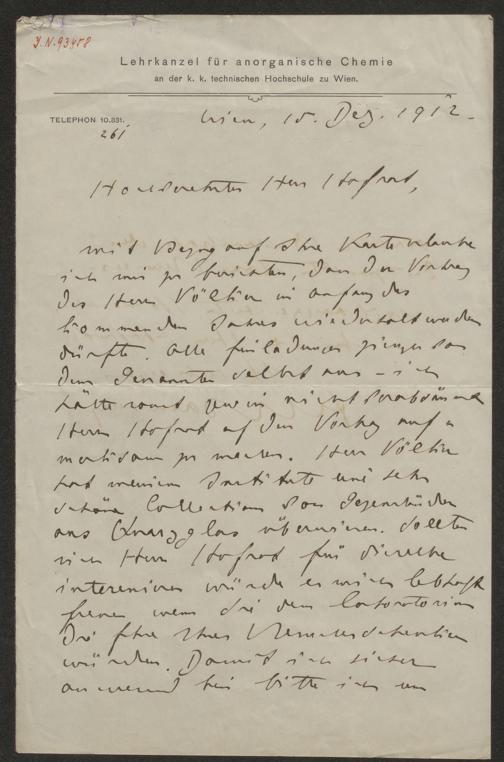 J.N. 93408
Lehrkanzel für anorganische Chemie
an der k. k. technischen Hochschule zu Wien.
TELEPHON 10.831.
261
Wien, 15. Dez. 1912.
Hochverehrter Herr Hofrat,
mit Bezug auf Ihre Karte erlaube
ich mir zu berichten, dass der Vortrag
des Herrn Völker im Anfang des
kommenden Jahres wiederholt werden
dürfte. Alle Einladungen gingen von
dem Genannten selbst aus – ich
hätte sonst gewiss nicht versäumt
Herrn Hofrat auf den Vortrag auf-
merksam zu machen. Herr Völker
hat meinem Institute eine sehr
schöne Collection von Gegenständen
aus Quarzglas überwiesen. Sollten
sich Herr Hofrat für dieselbe
interessieren würde es mich lebhaft
freuen wenn Sie dem Laboratorium
die Ehre Ihres Besuches schenken
würden. Damit ich sicher
anwesend bin bitte ich um